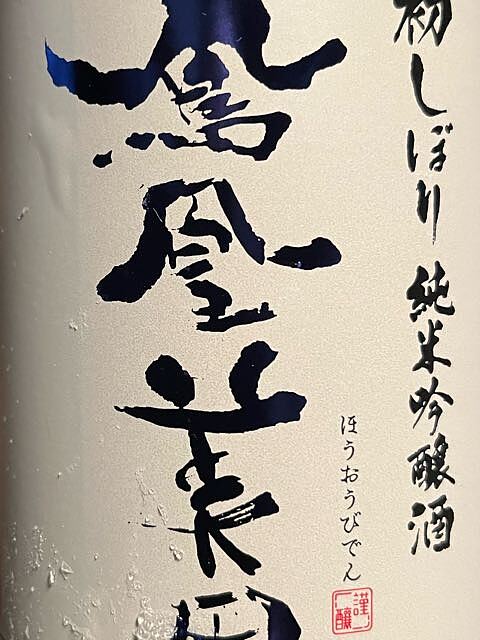 初しぼり 純米吟醸酒
鳳凰美田
ほうおうびでん
謹醸